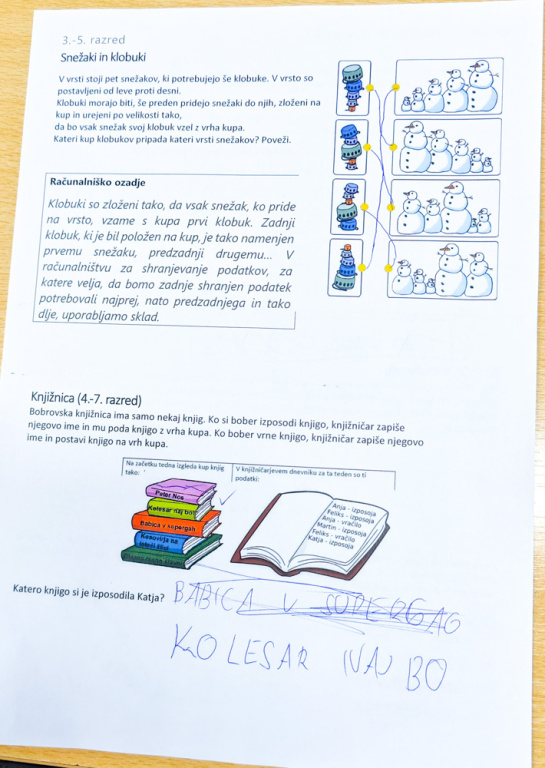 3.-5. razred
Snežaki in klobuki
V vrsti stoji pet snežakov, ki potrebujejo še klobuke. V vrsto so
postavljeni od leve proti desni.
Klobuki morajo biti, še preden pridejo snežaki do njih, zloženi na
kup in urejeni po velikosti tako,
da bo vsak snežak svoj klobuk vzel z vrha kupa.
Kateri kup klobukov pripada kateri vrsti snežakov? Poveži.
Računalniško ozadje
Klobuki so zloženi tako, da vsak snežak, ko pride
na vrsto, vzame s kupa prvi klobuk. Zadnji
klobuk, ki je bil položen na kup, je tako namenjen
prvemu snežaku, predzadnji drugemu... V
računalništvu za shranjevanje podatkov, za
katere velja, da bomo zadnje shranjen podatek
potrebovali najprej, nato predzadnjega in tako
dlje, uporabljamo sklad.
Knjižnica (4.-7. razred)
Bobrovska knjižnica ima samo nekaj knjig. Ko si bober izposodi knjigo, knjižničar zapiše
njegovo ime in mu poda knjigo z vrha kupa. Ko bober vrne knjigo, knjižničar zapiše njegovo
ime in postavi knjigo na vrh kupa.
Na začetku tedna izgleda kup knjig
tako:
V knjižničarjevem dnevniku za ta teden so ti
podatki:
Peter Nos
Kolesar naj bo!
Babica v supergah
Anja - izposoja
Feliks - izposoja
Anja - vračilo
Martin - izposoja
Feliks - vračilo
Katja - izposoja
Katero knjigo si je izposodila Katja?
BABICA V SUPERGAG
KOLESAR NAJ BO